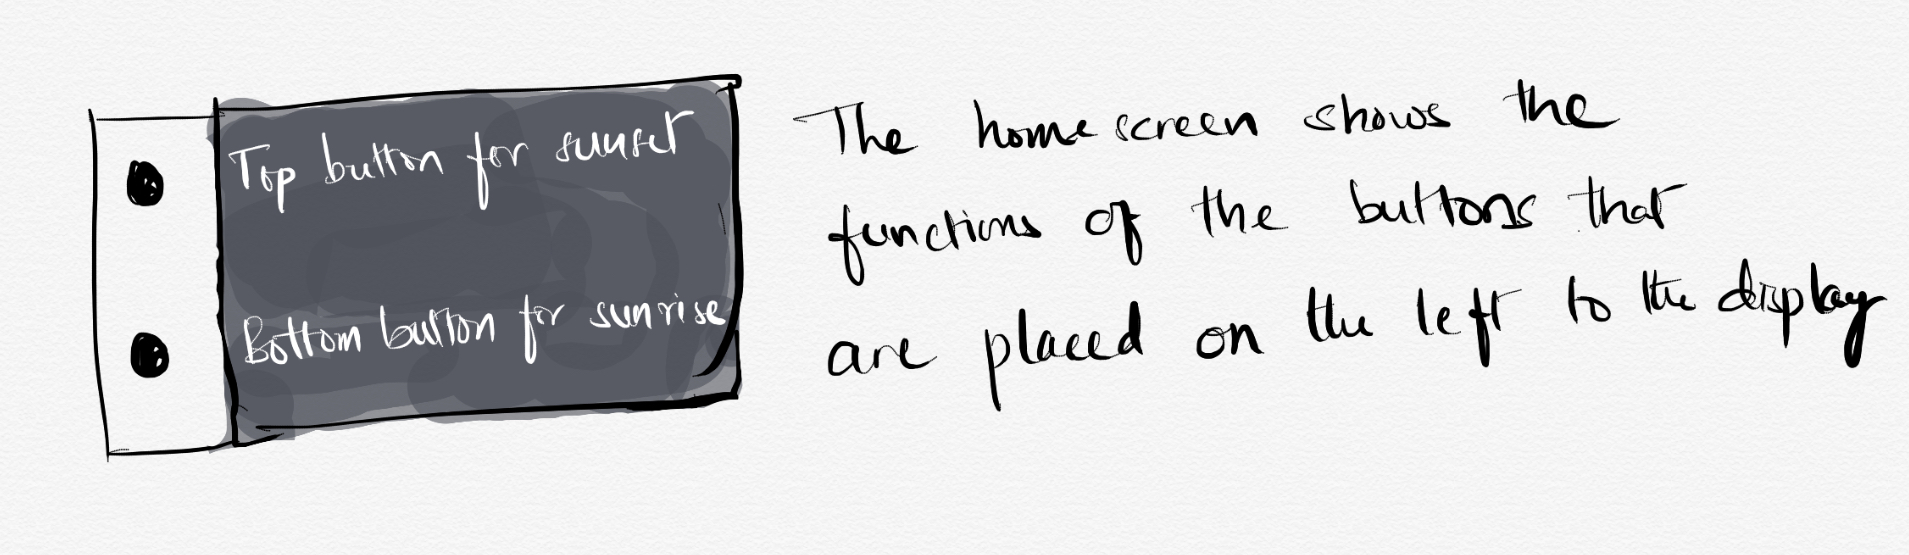 Top button for sunset
Bottom button for sunrise
The home screen shows the
functions of the buttons that
are placed on the left to the display